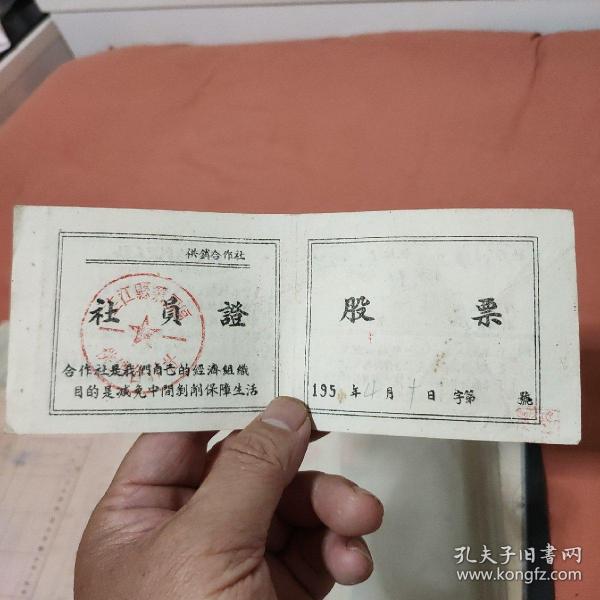 供銷合作社
社員證
合作社是我們自己的經濟組織
目的是减免中間剝削保障生活
股票
195 年4月十日 字第 號
孔夫子旧書网
www.kongfz.com